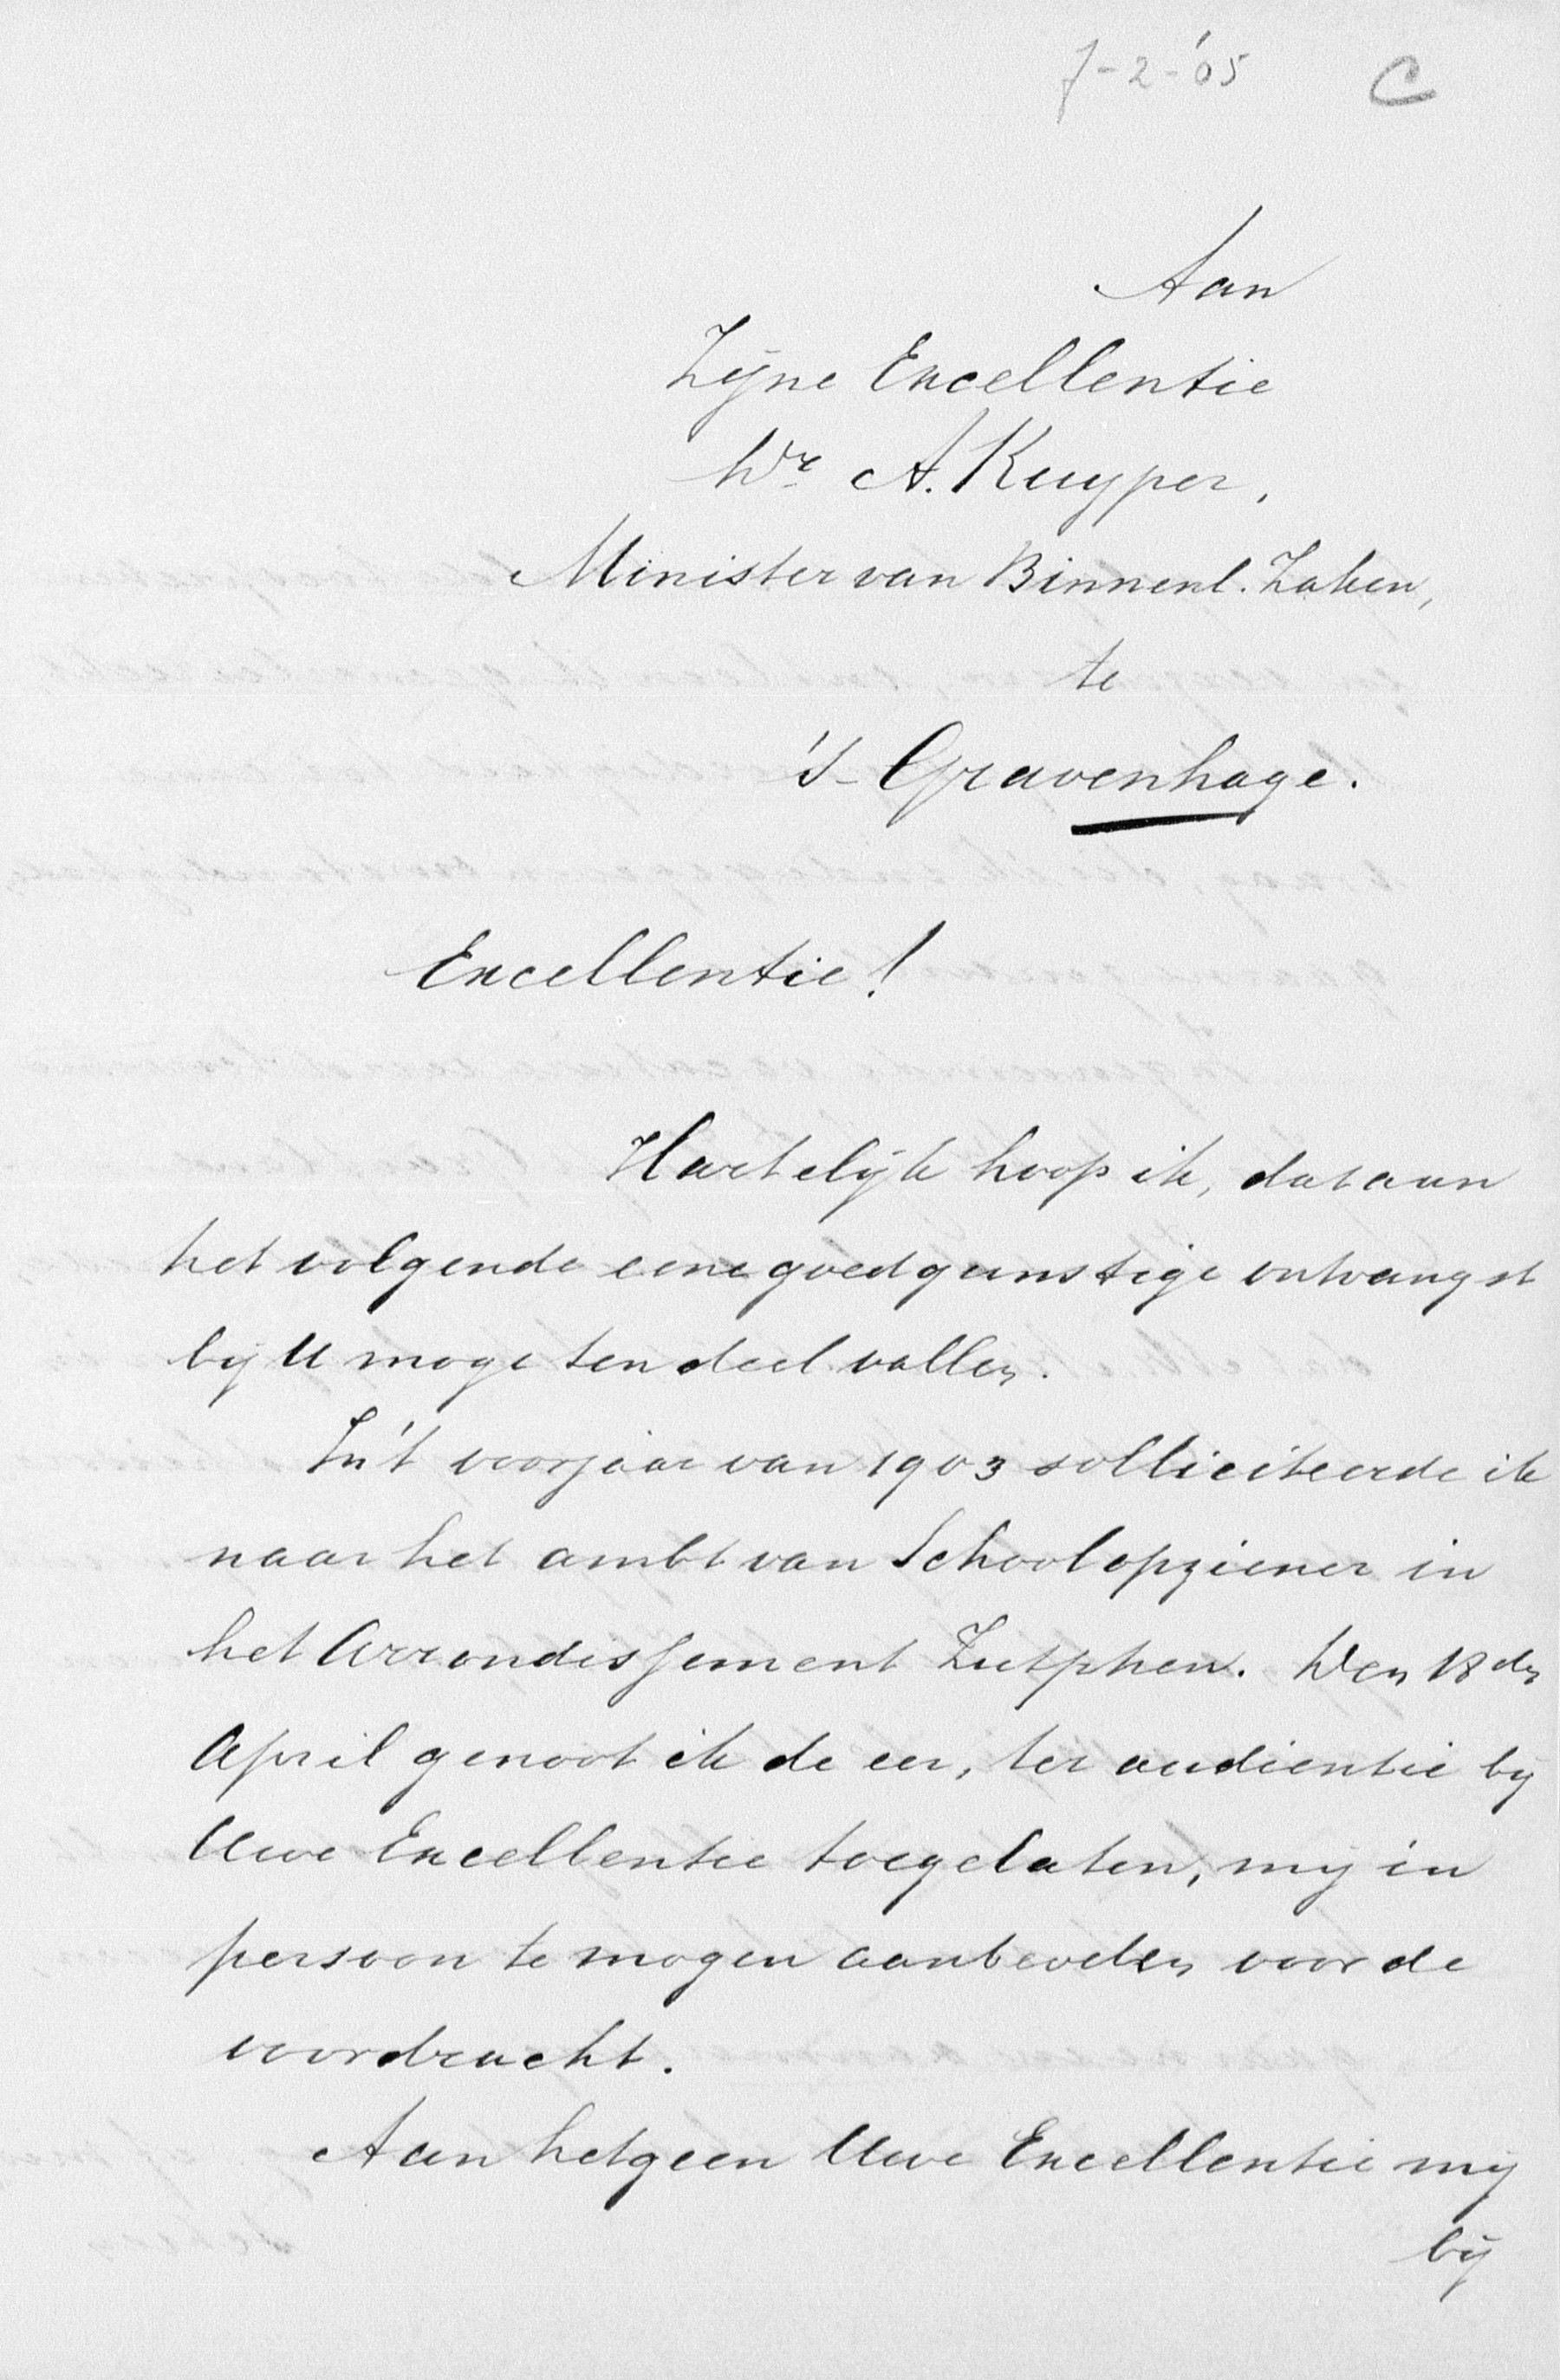 7-2-'05 C
Aan
Zijne Excellentie
Dr A. Kuyper,
Minister van Binnenl. Zaken,
te
's-Gravenhage.
Excellentie!
Hartelijk hoop ik, dat aan
het volgende eene goedgunstige ontvangst
bij U moge ten deel vallen.
In 't voorjaar van 1903 solliciteerde ik
naar het ambt van Schoolopziener in
het Arrondissement Zutphen. Den 18den
April genoot ik de eer, ter audientie bij
Uwe Excellentie toegelaten, mij in
persoon te mogen aanbevelen voor de
voordracht.
Aan hetgeen Uwe Excellentie mij
bij